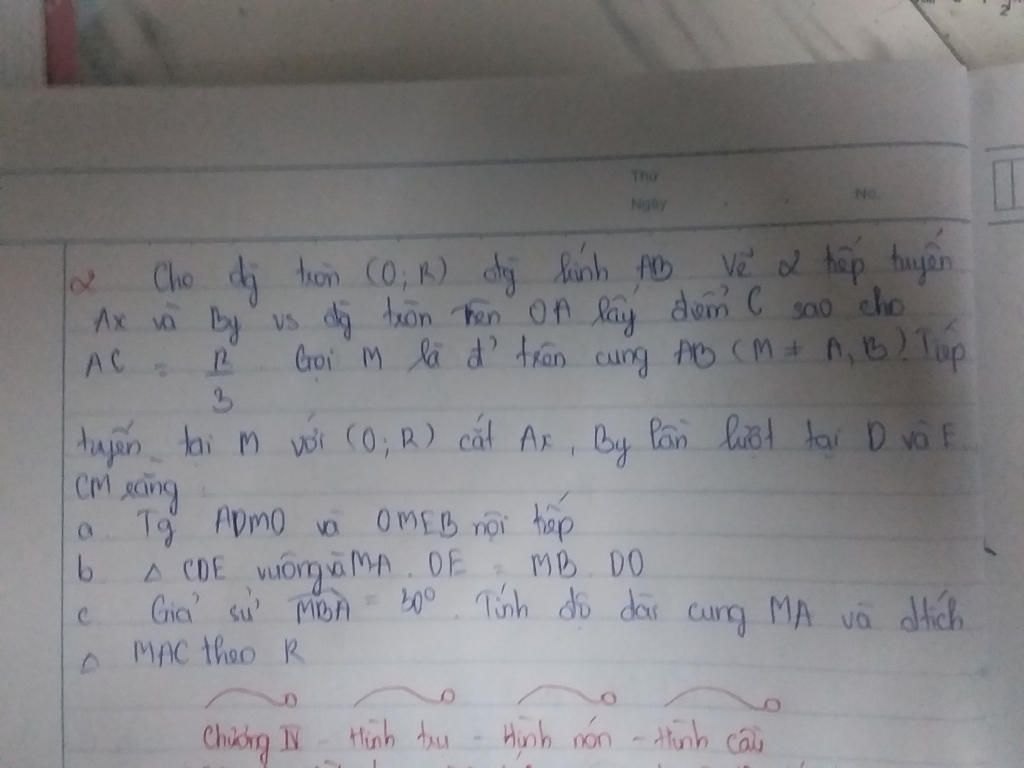 Thứ
Ngày No.
2 Cho đg tròn (O; R) đg kính AB Vẽ 2 tiếp tuyến
Ax và By vs đg tròn trên OA lấy điểm C sao cho
AC = R/3 Gọi M là đ' trên cung AB (M ≠ A, B). Tiếp
tuyến tại M với (O; R) cắt Ax, By lần lượt tại D và E
CM rằng :
a. Tg ADMO và OMEB nội tiếp
b Δ CDE vuông và MA . OE = MB . DO
c Giả sử MBA = 30° . Tính độ dài cung MA và dtích
Δ MAC theo R
Chương IV - Hình trụ - Hình nón - Hình cầu